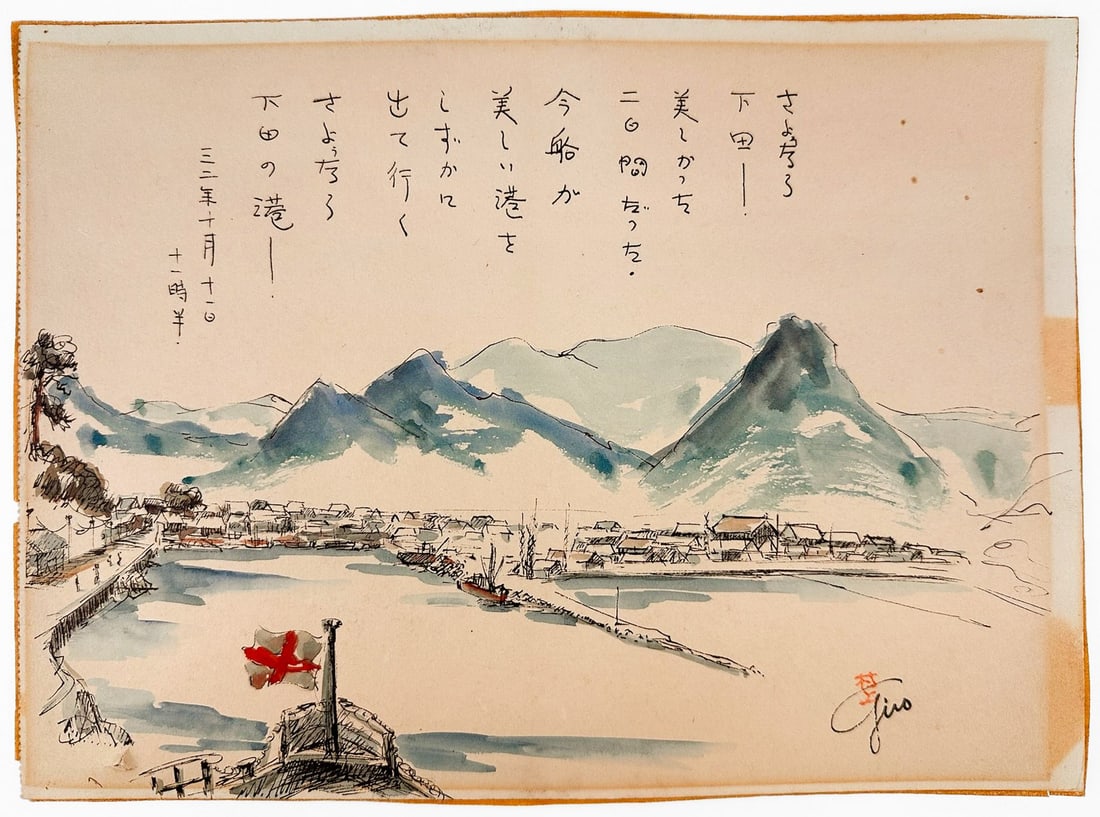 さようなら
下田―.
美しかった
二日間だった.
今船が
美しい港を
しずかに
出て行く
さようなら
下田の港―.
三二年十月十一日
十一時半.
村上
Giro